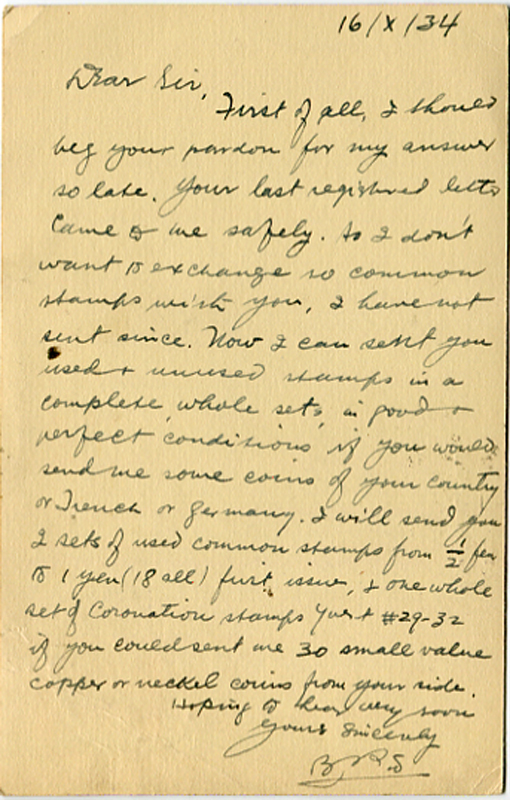 16/X/34
Dear Sir,
First of all, I should
beg your pardon for my answer
so late. Your last registered letter
came to me safely. As I don't
want to exchange so common
stamps with you, I have not
sent since. Now I can sent you
used & unused stamps in a
complete whole sets in good &
perfect conditions if you would
send me some coins of your country
or French or Germany. I will send you
2 sets of used common stamps from ½ fen
to 1 yen (18 all) first issue, & one whole
set of Coronation stamps Yvert #29-32
if you could sent me 30 small value
copper or neckel coins from your side.
Hoping to hear very soon
Yours Sincerely